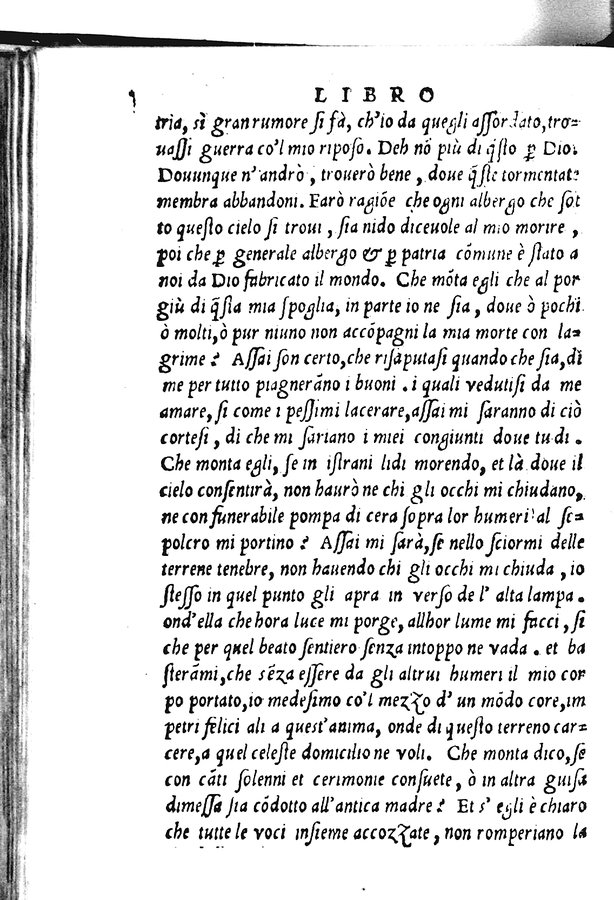 LIBRO
tria, sì gran rumore si fà, ch'io da quegli assordato, tro=
uassi guerra co'l mio riposo. Deh nõ più di q̃sto ꝑ Dio.
Douunque n'andrò, trouerò bene, doue q̃ste tormentate
membra abbandoni. Farò ragiõe che ogni albergo che sot
to questo cielo si troui, sia nido diceuole al mio morire,
poi che ꝑ generale albergo & ꝑ patria cõmune è stato a
noi da Dio fabricato il mondo. Che mõta egli che al por
giù di q̃sta mia spoglia, in parte io ne sia, doue ò pochi
ò molti, ò pur niuno non accõpagni la mia morte con la=
grime? Assai son certo, che risaputasi quando che sia, di
me per tutto piagnerãno i buoni. i quali vedutisi da me
amare, si come i pessimi lacerare, assai mi saranno di ciò
cortesi, di che mi sariano i miei congiunti doue tu di.
Che monta egli, se in istrani lidi morendo, et là doue il
cielo consentirà, non haurò ne chi gli occhi mi chiudano,
ne con funerabile pompa di cera sopra lor humeri al se=
polcro mi portino? Assai mi sarà, se nello sciormi delle
terrene tenebre, non hauendo chi gli occhi mi chiuda, io
stesso in quel punto gli apra in verso de l'alta lampa.
ond'ella che hora luce mi porge, allhor lume mi facci, si
che per quel beato sentiero senza intoppo ne vada. et ba
sterãmi, che sẽza essere da gli altrui humeri il mio cor
po portato, io medesimo co'l mezzo d'un mõdo core, im
petri felici ali a quest'anima, onde di questo terreno car=
cere, a quel celeste domicilio ne voli. Che monta dico, se
con cãti solenni et cerimonie consuete, ò in altra guisa
dimessa sia cõdotto all'antica madre? Et s'egli è chiaro
che tutte le voci insieme accozzate, non romperiano la